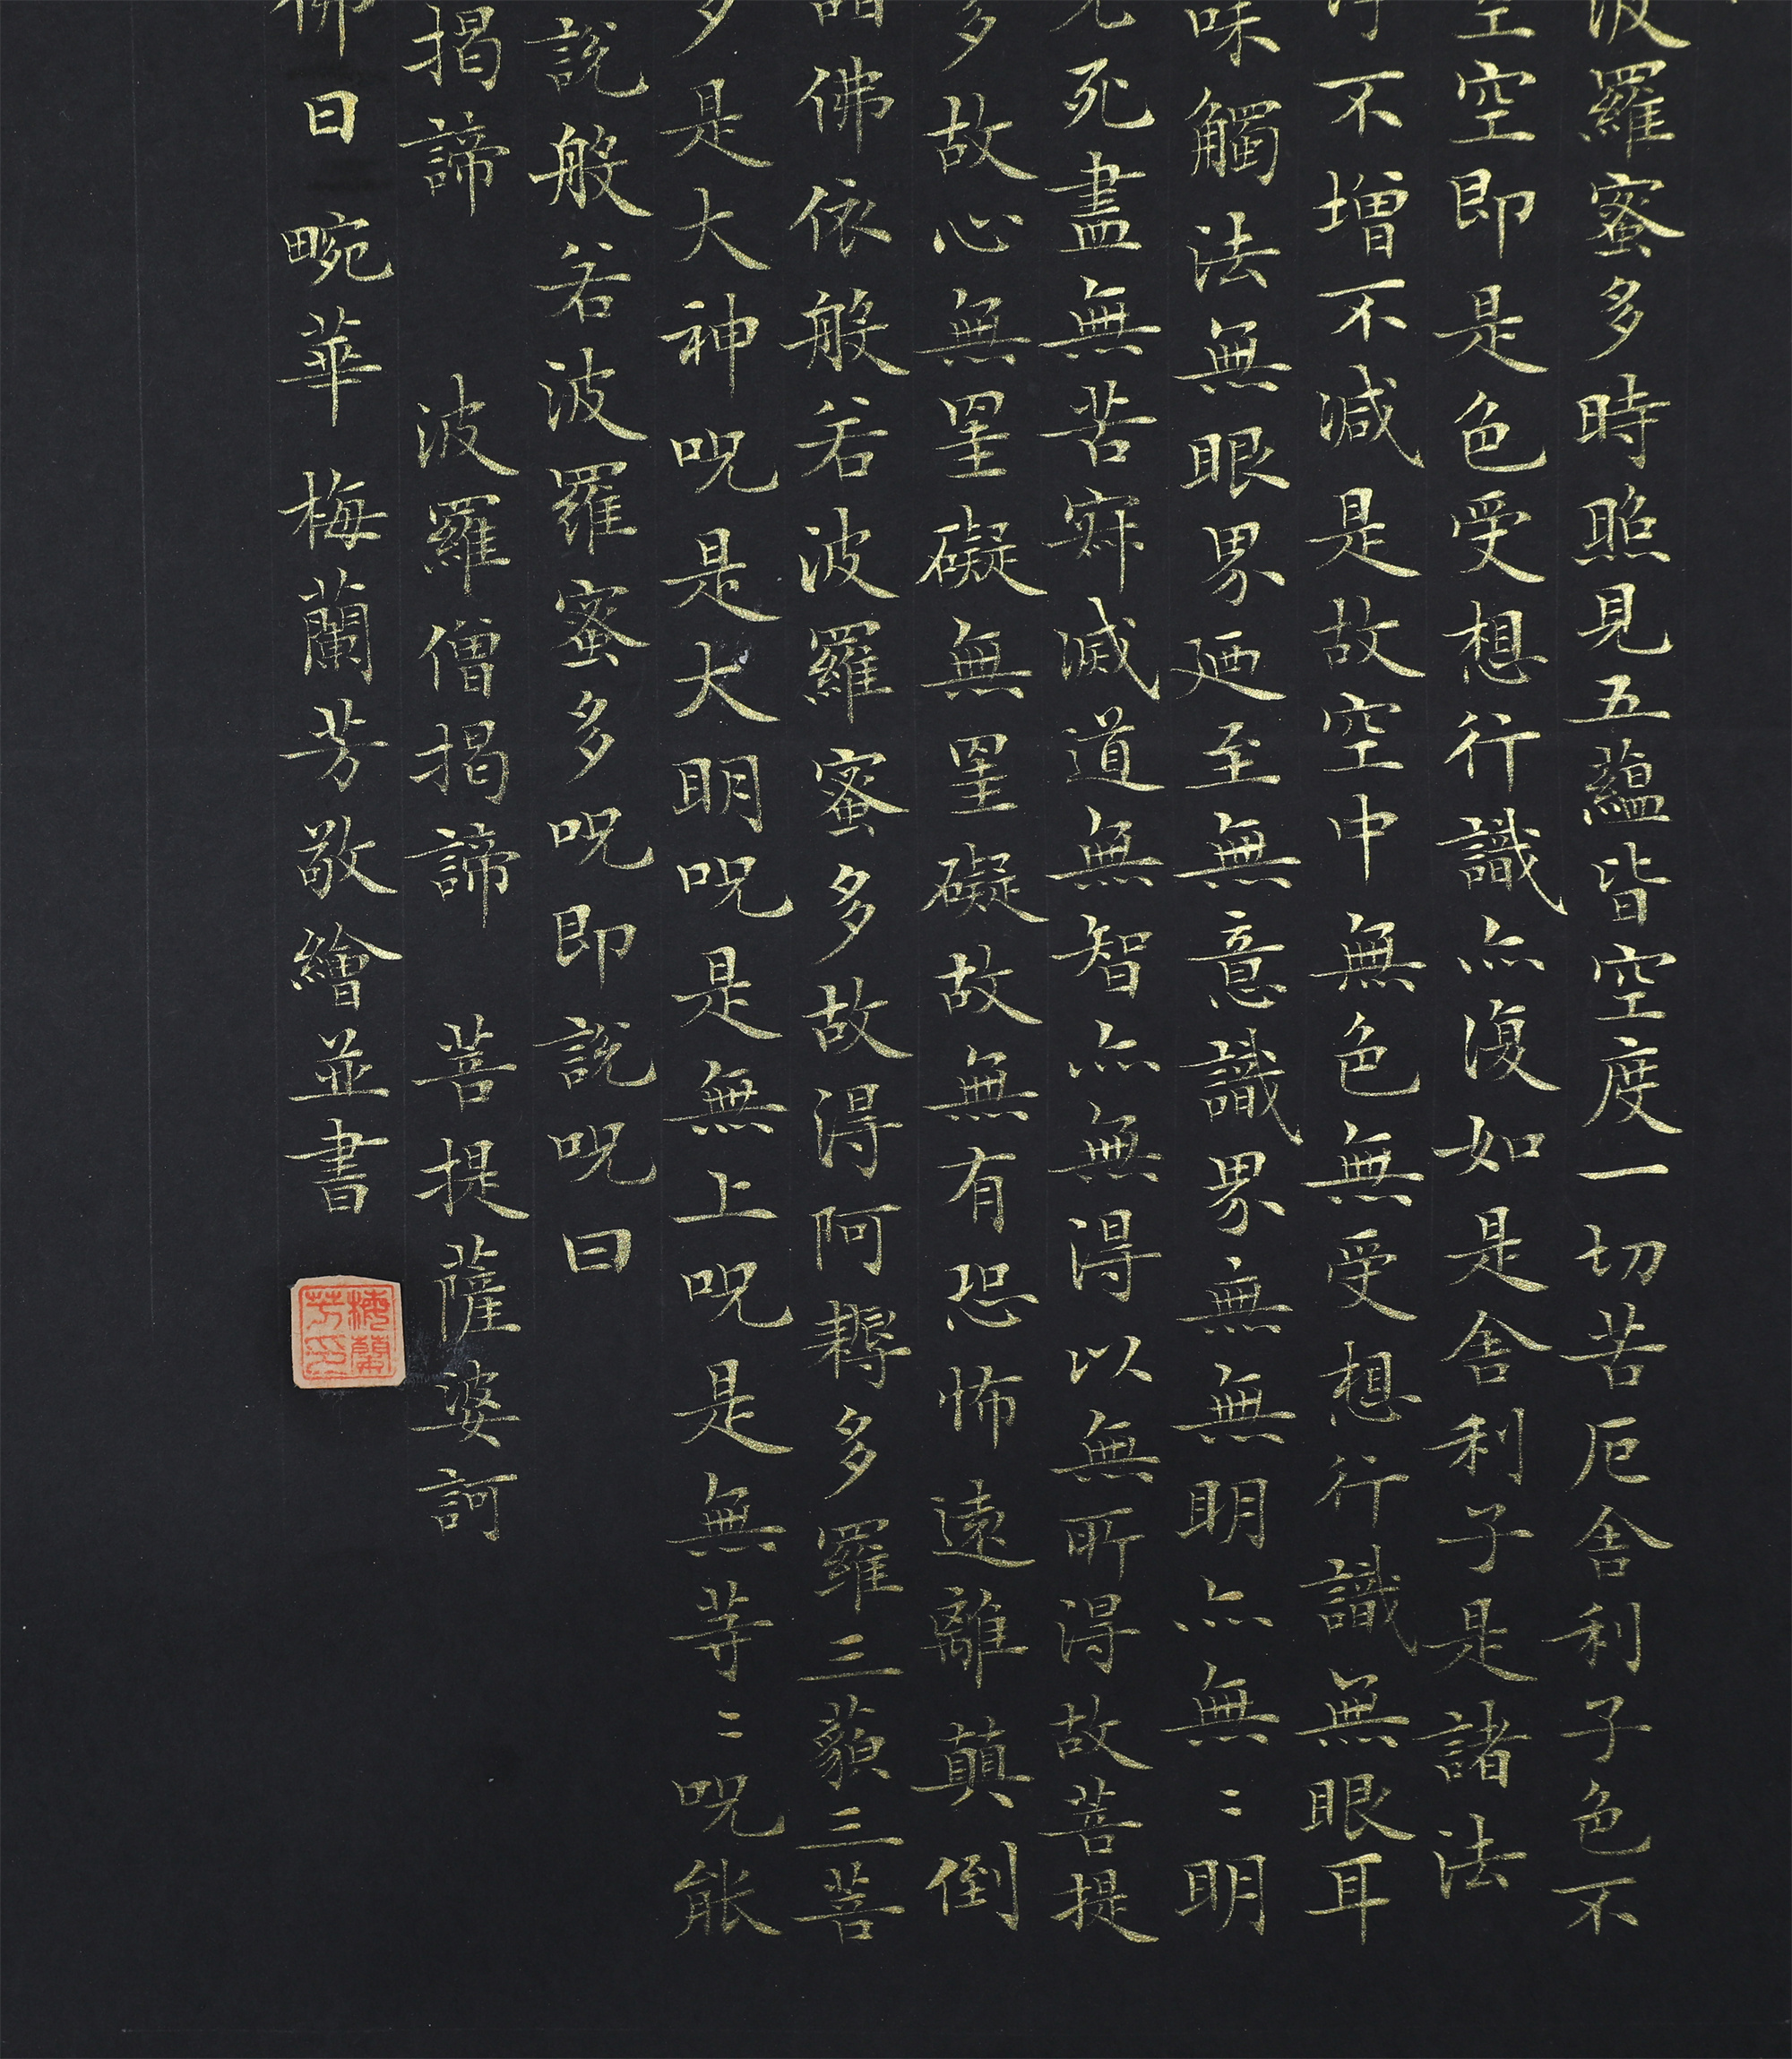 波羅蜜多時照見五蘊皆空度一切苦厄舍利子色不
空空即是色受想行識亦復如是舍利子是諸法
不增不減是故空中無色無受想行識無眼耳
味觸法無眼界廼至無意識界無無明亦無〻明
死盡無苦寂滅道無智亦無得以無所得故菩提
多故心無罣礙無罣礙故無有恐怖遠離顛倒
佛依般若波羅蜜多故得阿耨多羅三藐三菩
多是大神呪是大明呪是無上呪是無等〻呪能
說般若波羅蜜多呪即說呪曰
揭諦 波羅僧揭諦 菩提薩婆訶
佛日 畹華梅蘭芳敬繪並書
梅蘭芳印